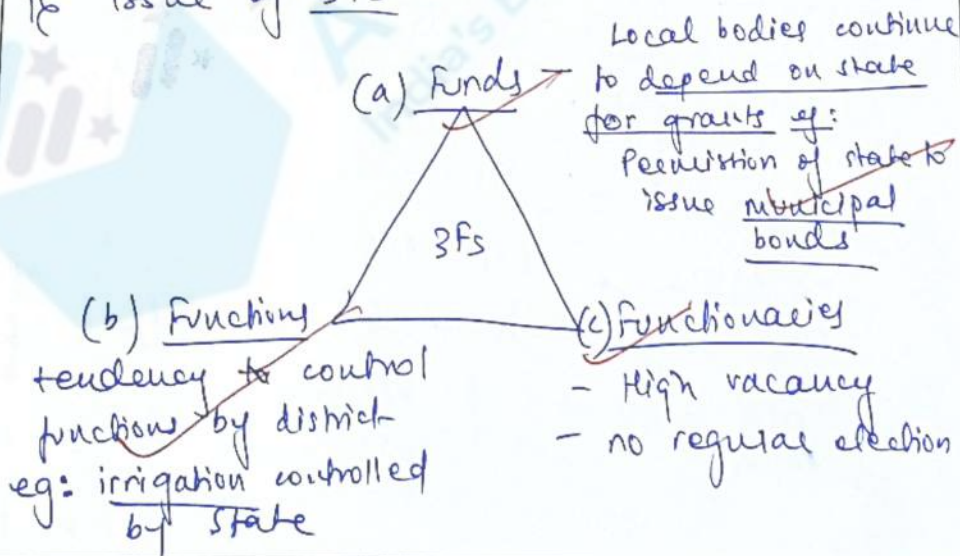 issue of 3Fs
(a) Funds –
Local bodies continue
to depend on state
for grants eg:
Permistion of state to
issue municipal
bonds
3Fs
(b) Functions
tendency to control
functions by district
eg: irrigation controlled
by state
(c) Functionaries
- High vacancy
- no regular election
India's